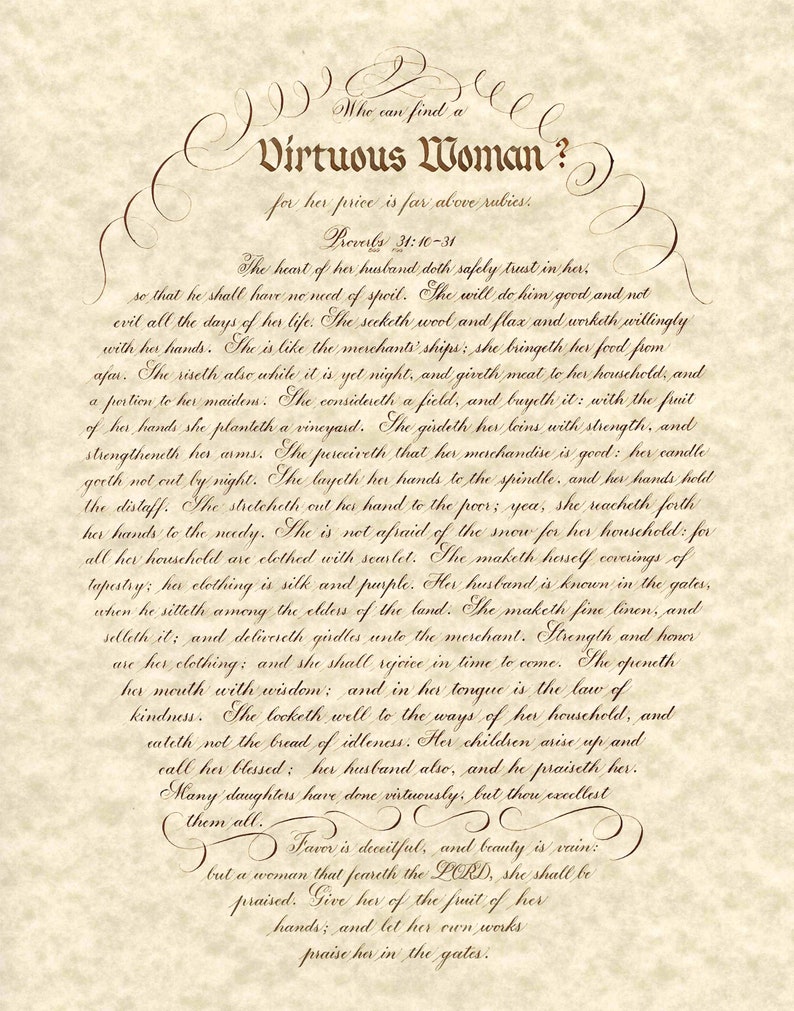 Who can find a
Virtuous Woman?
for her price is far above rubies.
Proverbs 31:10-31
The heart of her husband doth safely trust in her,
so that he shall have no need of spoil. She will do him good and not
evil all the days of her life. She seeketh wool and flax and worketh willingly
with her hands. She is like the merchants' ships; she bringeth her food from
afar. She riseth also while it is yet night, and giveth meat to her household, and
a portion to her maidens. She considereth a field, and buyeth it: with the fruit
of her hands she planteth a vineyard. She girdeth her loins with strength, and
strengtheneth her arms. She perceiveth that her merchandise is good: her candle
goeth not out by night. She layeth her hands to the spindle, and her hands hold
the distaff. She stretcheth out her hand to the poor; yea, she reacheth forth
her hands to the needy. She is not afraid of the snow for her household: for
all her household are clothed with scarlet. She maketh herself coverings of
tapestry; her clothing is silk and purple. Her husband is known in the gates,
when he sitteth among the elders of the land. She maketh fine linen, and
selleth it; and delivereth girdles unto the merchant. Strength and honor
are her clothing; and she shall rejoice in time to come. She openeth
her mouth with wisdom; and in her tongue is the law of
kindness. She looketh well to the ways of her household, and
eateth not the bread of idleness. Her children arise up and
call her blessed; her husband also, and he praiseth her.
Many daughters have done virtuously, but thou excellest
them all.
Favor is deceitful, and beauty is vain:
but a woman that feareth the LORD, she shall be
praised. Give her of the fruit of her
hands; and let her own works
praise her in the gates.